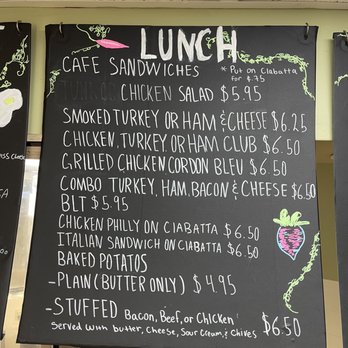 LUNCH
CAFE SANDWICHES
* Put on Ciabatta
for $.75
CHICKEN SALAD $5.95
SMOKED TURKEY OR HAM & CHEESE $6.25
CHICKEN, TURKEY OR HAM CLUB $6.50
GRILLED CHICKEN CORDON BLEU $6.50
COMBO TURKEY, HAM, BACON & CHEESE $6.50
BLT $5.95
CHICKEN PHILLY ON CIABATTA $6.50
ITALIAN SANDWICH ON CIABATTA $6.50
BAKED POTATOS
-PLAIN (BUTTER ONLY) $4.95
-STUFFED Bacon, Beef, or Chicken
Served with butter, Cheese, Sour Cream, & Chives $6.50